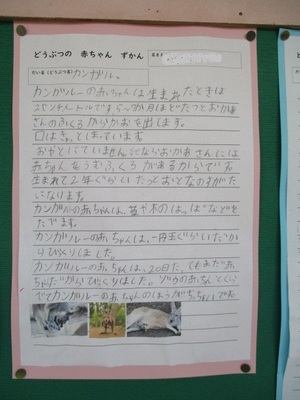 どうぶつの 赤ちゃん ずかん
だい名(どうぶつ名)カンガルー
カンガルーの赤ちゃんは生まれたときは
2センチメートルです 5~6か月ほどたつとおかあ
さんのふくろからかおを出します。
口はきっとしまっています
おやとにていませんにならおかあさんには
赤ちゃんをうむふくろがあるからです
生まれて2年ぐらいたつとおとなのすがた
になります。
カンガルーの赤ちゃんは、草や木のは。はなどをた
たべます。
カンガルーの赤ちゃんは、一円玉ぐらいだか
らびっくりしました。
カンガルーの赤ちゃんは、20日
ちゃだからびっくりしました。
でカンガルーの赤ちゃんのほうがちっちゃいです